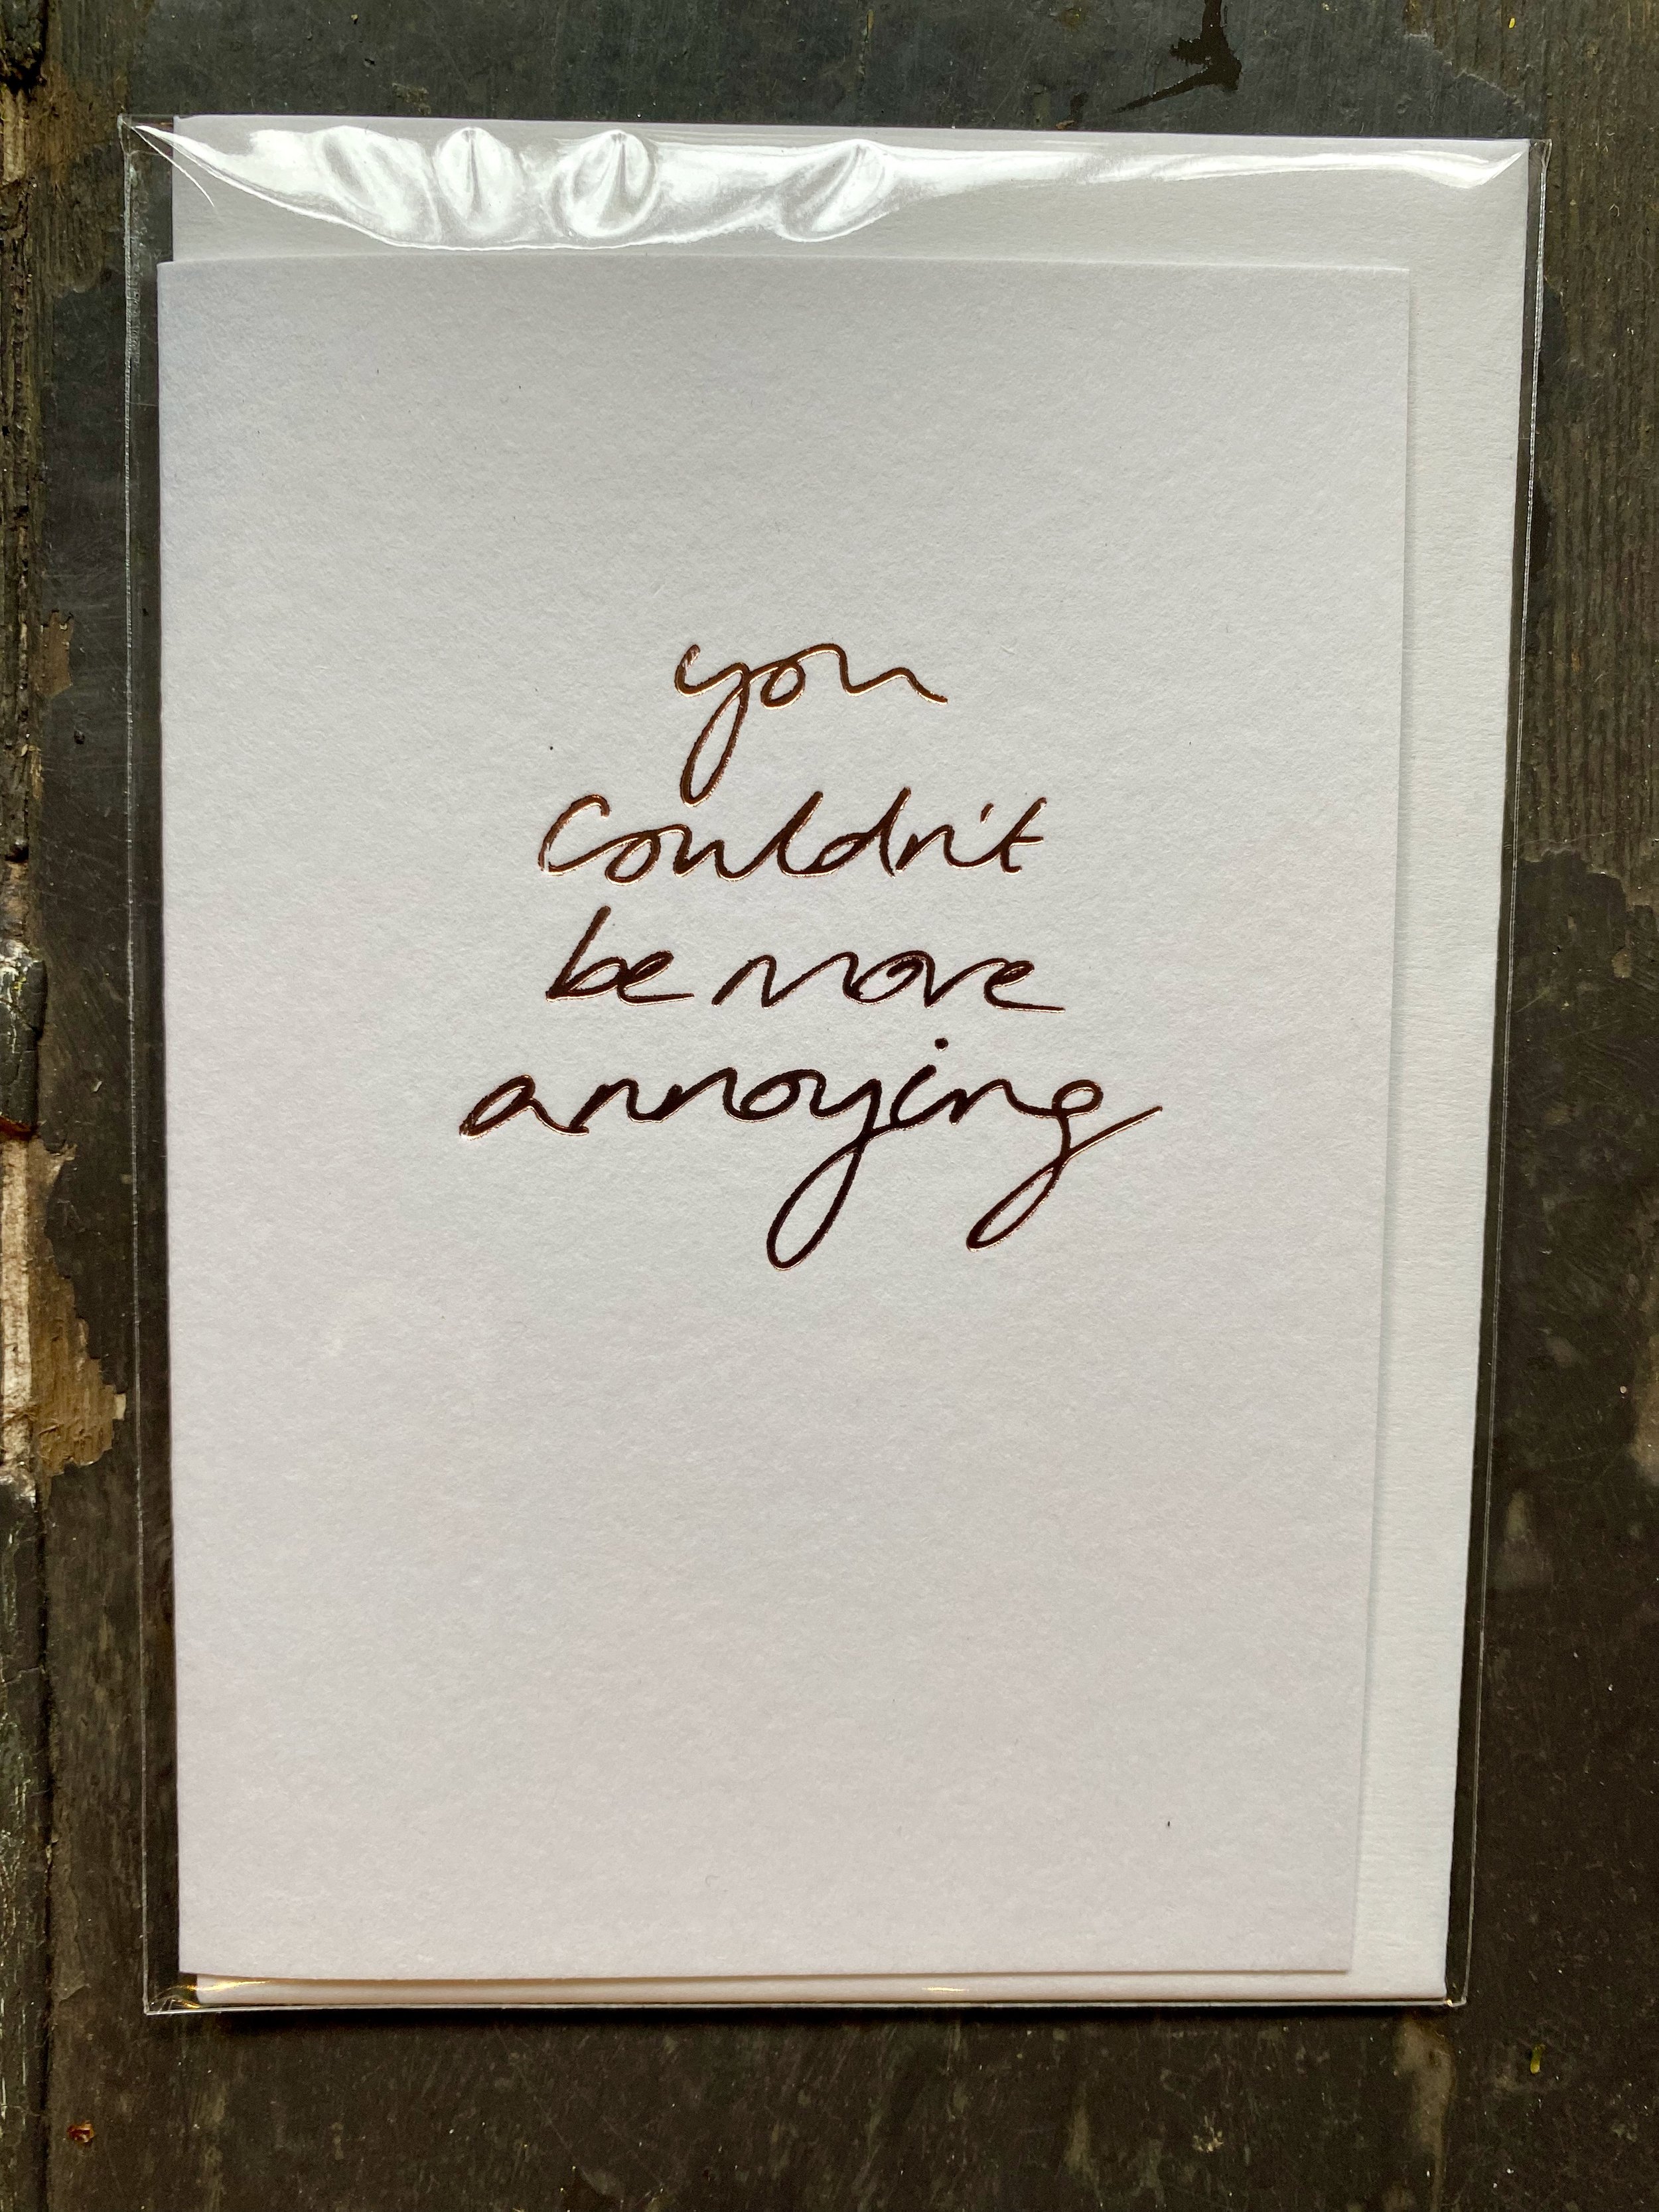 you
couldn't
be more
annoying